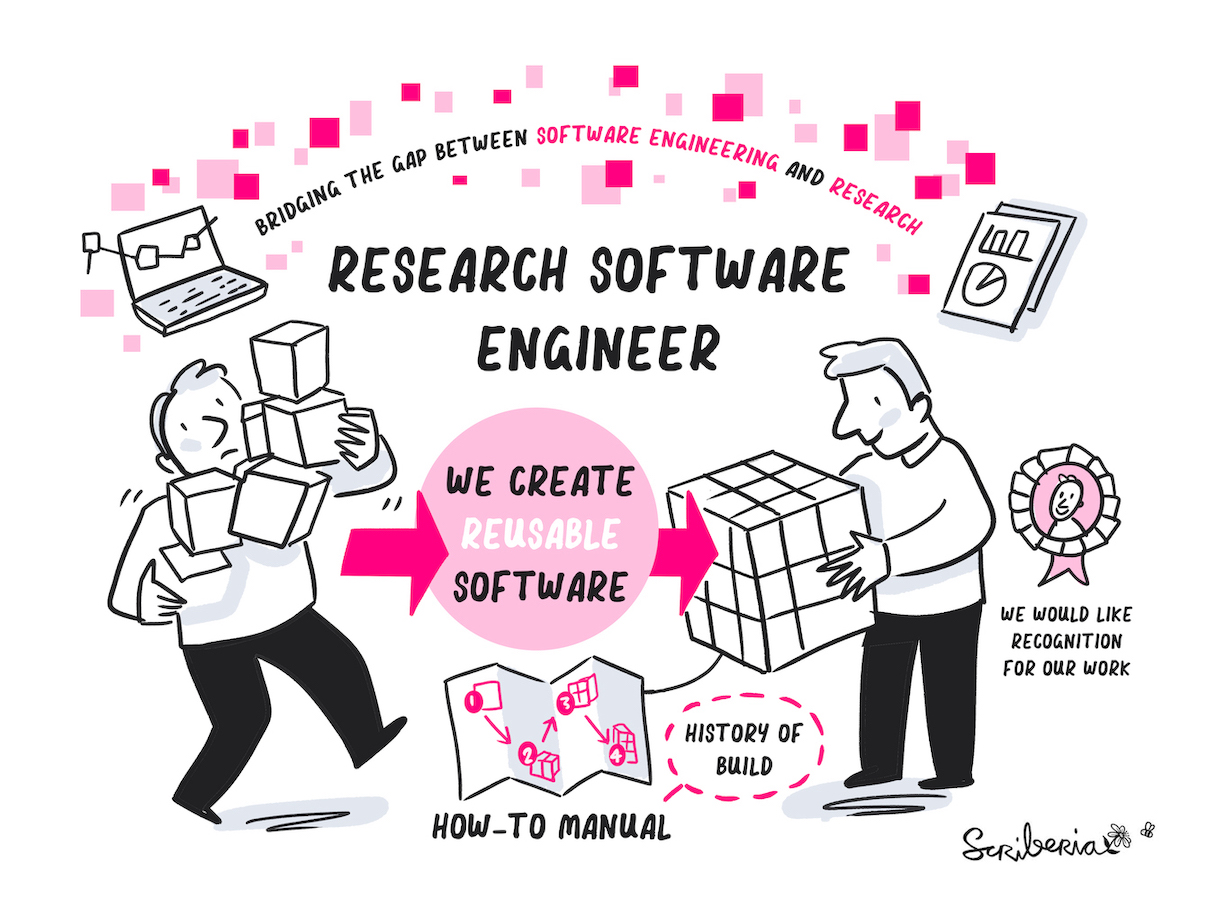 BRIDGING THE GAP BETWEEN SOFTWARE ENGINEERING AND RESEARCH
RESEARCH SOFTWARE
ENGINEER
WE CREATE
REUSABLE
SOFTWARE
WE WOULD LIKE
RECOGNITION
FOR OUR WORK
1
2
3
4
HISTORY OF
BUILD
HOW-TO MANUAL
Scriberia